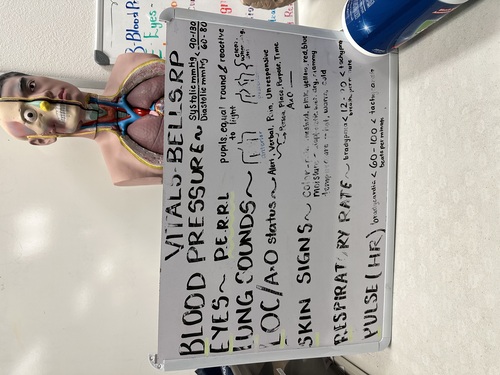 VITALS-BELLS.RP
BLOOD PRESSURE~ Systolic mmHg, 90-130
Diastolic mmHg 60-80
EYES~ P.E.R.R.L pupils, equal round & reactive
to light
LUNG SOUNDS~
LOC/A×O status~ Alert, Verbal, Pain, Unresponsive
Person, Place, Purpose, Time
A×O
SKIN SIGNS~ color- pink, yellow, red, blue
moisture- dry, clammy
temperature - hot, warm, cold
RESPIRATORY RATE~ bradypnea < 12-20 < tachypnea
breaths per minute
PULSE (HR) bradycardic < 60-100 < tachycardic
beats per minute
B-Blood Pr
E-Eyes-